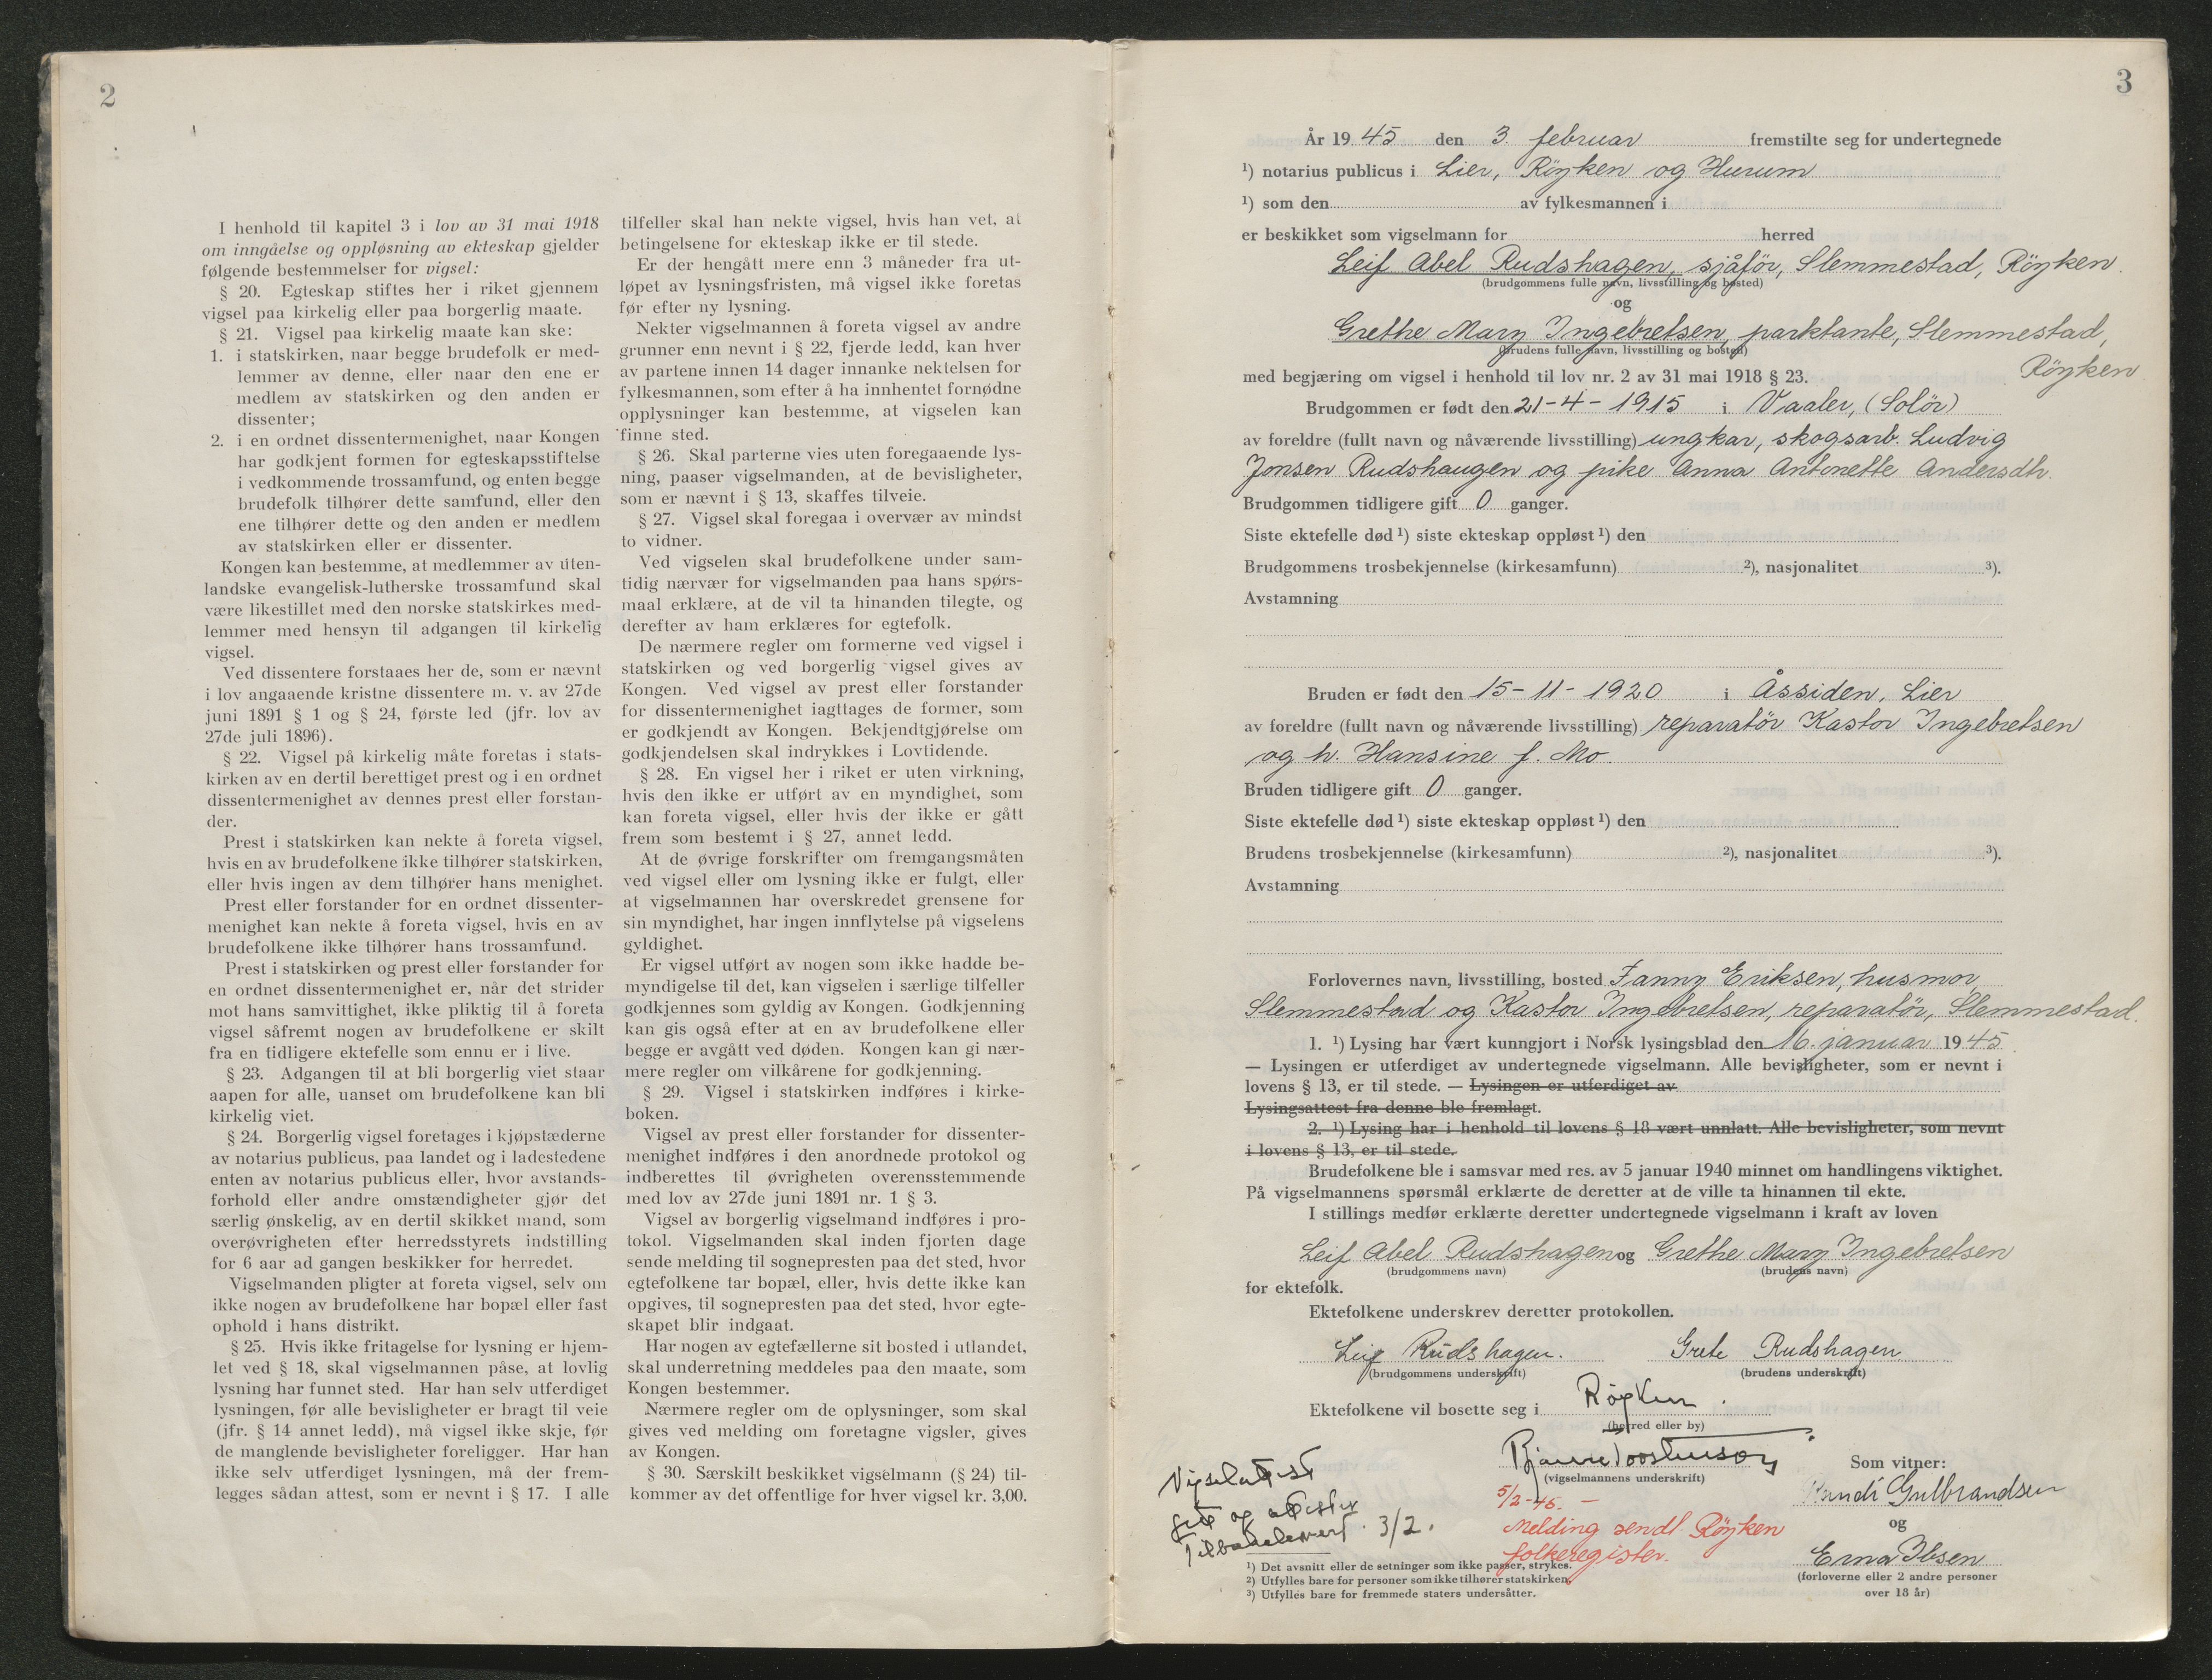 2
I henhold til kapitel 3 i lov av 31 mai 1918
om inngåelse og oppløsning av ekteskap gjelder
følgende bestemmelser for vigsel:
§ 20. Egteskap stiftes her i riket gjennem
vigsel paa kirkelig eller paa borgerlig maate.
§ 21. Vigsel paa kirkelig maate kan ske:
1. i statskirken, naar begge brudefolk er med-
lemmer av denne, eller naar den ene er
medlem av statskirken og den anden er
dissenter;
2. i en ordnet dissentermenighet, naar Kongen
har godkjent formen for egteskapsstiftelse
i vedkommende trossamfund, og enten begge
brudefolk tilhører dette samfund, eller den
ene tilhører dette og den anden er medlem
av statskirken eller er dissenter.
Kongen kan bestemme, at medlemmer av uten-
landske evangelisk-lutherske trossamfund skal
være likestillet med den norske statskirkes med-
lemmer med hensyn til adgangen til kirkelig
vigsel.
Ved dissentere forstaaes her de, som er nævnt
i lov angaaende kristne dissentere m. v. av 27de
juni 1891 § 1 og § 24, første led (jfr. lov av
27de juli 1896).
§ 22. Vigsel på kirkelig måte foretas i stats-
kirken av en dertil berettiget prest og i en ordnet
dissentermenighet av dennes prest eller forstan-
der.
Prest i statskirken kan nekte å foreta vigsel,
hvis en av brudefolkene ikke tilhører statskirken,
eller hvis ingen av dem tilhører hans menighet.
Prest eller forstander for en ordnet dissenter-
menighet kan nekte å foreta vigsel, hvis en av
brudefolkene ikke tilhører hans trossamfund.
Prest i statskirken og prest eller forstander for
en ordnet dissentermenighet er, når det strider
mot hans samvittighet, ikke pliktig til å foreta
vigsel såfremt nogen av brudefolkene er skilt
fra en tidligere ektefelle som ennu er i live.
§ 23. Adgangen til at bli borgerlig viet staar
aapen for alle, uanset om brudefolkene kan bli
kirkelig viet.
§ 24. Borgerlig vigsel foretages i kjøpstæderne
av notarius publicus, paa landet og i ladestedene
enten av notarius publicus eller, hvor avstands-
forhold eller andre omstændigheter gjør det
særlig ønskelig, av en dertil skikket mand, som
overøvrigheten efter herredsstyrets indstilling
for 6 aar ad gangen beskikker for herredet.
Vigselmanden pligter at foreta vigsel, selv om
ikke nogen av brudefolkene har bopæl eller fast
ophold i hans distrikt.
§ 25. Hvis ikke fritagelse for lysning er hjem-
let ved § 18, skal vigselmannen påse, at lovlig
lysning har funnet sted. Har han selv utferdiget
lysningen, før alle bevisligheter er bragt til veie
(jfr. § 14 annet ledd), må vigsel ikke skje, før
de manglende bevisligheter foreligger. Har han
ikke selv utferdiget lysningen, må der frem-
legges sådan attest, som er nevnt i § 17. I alle
tilfeller skal han nekte vigsel, hvis han vet, at
betingelsene for ekteskap ikke er til stede.
Er der hengått mere enn 3 måneder fra ut-
løpet av lysningsfristen, må vigsel ikke foretas
før efter ny lysning.
Nekter vigselmannen å foreta vigsel av andre
grunner enn nevnt i § 22, fjerde ledd, kan hver
av partene innen 14 dager innanke nektelsen for
fylkesmannen, som efter å ha innhentet fornødne
opplysninger kan bestemme, at vigselen kan
finne sted.
§ 26. Skal parterne vies uten foregaaende lys-
ning, paaser vigselmanden, at de bevisligheter,
som er nævnt i § 13, skaffes tilveie.
§ 27. Vigsel skal foregaa i overvær av mindst
to vidner.
Ved vigselen skal brudefolkene under sam-
tidig nærvær for vigselmanden paa hans spørs-
maal erklære, at de vil ta hinanden tilegte, og
derefter av ham erklæres for egtefolk.
De nærmere regler om formerne ved vigsel i
statskirken og ved borgerlig vigsel gives av
Kongen. Ved vigsel av prest eller forstander
for dissentermenighet iagttages de former, som
er godkjendt av Kongen. Bekjendtgjørelse om
godkjendelsen skal indrykkes i Lovtidende.
§ 28. En vigsel her i riket er uten virkning,
hvis den ikke er utført av en myndighet, som
kan foreta vigsel, eller hvis der ikke er gått
frem som bestemt i § 27, annet ledd.
At de øvrige forskrifter om fremgangsmåten
ved vigsel eller om lysning ikke er fulgt, eller
at vigselmannen har overskredet grensene for
sin myndighet, har ingen innflytelse på vigselens
gyldighet.
Er vigsel utført av nogen som ikke hadde be-
myndigelse til det, kan vigselen i særlige tilfeller
godkjennes som gyldig av Kongen. Godkjenning
kan gis også efter at en av brudefolkene eller
begge er avgått ved døden. Kongen kan gi nær-
mere regler om vilkårene for godkjenning.
§ 29. Vigsel i statskirken indføres i kirke-
boken.
Vigsel av prest eller forstander for dissenter-
menighet indføres i den anordnede protokol og
indberettes til øvrigheten overensstemmende
med lov av 27de juni 1891 nr. 1 § 3.
Vigsel av borgerlig vigselmand indføres i pro-
tokol. Vigselmanden skal inden fjorten dage
sende melding til sognepresten paa det sted, hvor
egtefolkene tar bopæl, eller, hvis dette ikke kan
opgives, til sognepresten paa det sted, hvor egte-
skapet blir indgaat.
Har nogen av egtefællerne sit bosted i utlandet,
skal underretning meddeles paa den maate, som
Kongen bestemmer.
Nærmere regler om de oplysninger, som skal
gives ved melding om foretagne vigsler, gives
av Kongen.
§ 30. Særskilt beskikket vigselmann (§ 24) til-
kommer av det offentlige for hver vigsel kr. 3,00.
3
År 1945 den 3. februar fremstilte seg for undertegnede
¹) notarius publicus i Lier, Röyken og Hurum
¹) som den av fylkesmannen i
er beskikket som vigselmann for herred
Leif Abel Rudshagen, sjåför, Slemmestad, Röyken.
(brudgommens fulle navn, livsstilling og bosted)
og
Grethe Mary Ingebretsen, parktante, Slemmestad,
(brudens fulle navn, livsstilling og bosted)
Röyken
med begjæring om vigsel i henhold til lov nr. 2 av 31 mai 1918 § 23.
Brudgommen er født den 21-4-1915 i Vaaler, (Solör)
av foreldre (fullt navn og nåværende livsstilling) ungkar, skogsarb. Ludvig
Jonsen Rudshaugen og pike Anna Antonette Andersdtr.
Brudgommen tidligere gift 0 ganger.
Siste ektefelle død ¹) siste ekteskap oppløst ¹) den
Brudgommens trosbekjennelse (kirkesamfunn) ²), nasjonalitet ³).
Avstamning
Bruden er født den 15-11-1920 i Åssiden, Lier
av foreldre (fullt navn og nåværende livsstilling) reparatör Kastor Ingebretsen
og h. Hansine f. Mo.
Bruden tidligere gift 0 ganger.
Siste ektefelle død ¹) siste ekteskap oppløst ¹) den
Brudens trosbekjennelse (kirkesamfunn) ²), nasjonalitet ³).
Avstamning
Forlovernes navn, livsstilling, bosted Fanny Eriksen, husmor,
Slemmestad og Kastor Ingebretsen, reparatör, Slemmestad.
1. ¹) Lysing har vært kunngjort i Norsk lysingsblad den 16. januar 1945.
— Lysingen er utferdiget av undertegnede vigselmann. Alle bevisligheter, som er nevnt i
lovens § 13, er til stede. — Lysingen er utferdiget av
Lysingsattest fra denne ble fremlagt.
2. ¹) Lysing har i henhold til lovens § 18 vært unnlatt. Alle bevisligheter, som nevnt
i lovens § 13, er til stede.
Brudefolkene ble i samsvar med res. av 5 januar 1940 minnet om handlingens viktighet.
På vigselmannens spørsmål erklærte de deretter at de ville ta hinannen til ekte.
I stillings medfør erklærte deretter undertegnede vigselmann i kraft av loven
Leif Abel Rudshagen og Grethe Mary Ingebretsen
(brudgommens navn) (brudens navn)
for ektefolk.
Ektefolkene underskrev deretter protokollen.
Leif Rudshagen. Grete Rudshagen
(brudgommens underskrift) (brudens underskrift)
Ektefolkene vil bosette seg i Røyken.
(herred eller by)
Bjarne
(vigselmannens underskrift)
Som vitner:
Gulbrandsen
og
Erna Ibsen
(forloverne eller 2 andre personer
over 18 år)
Vigselattest
gitt og attester
tilbakelevert 3/2.
5/2-45. –
Melding sendt Röyken
folkeregister.
¹) Det avsnitt eller de setninger som ikke passer, strykes.
²) Utfylles bare for personer som ikke tilhører statskirken.
³) Utfylles bare for fremmede staters undersåtter.